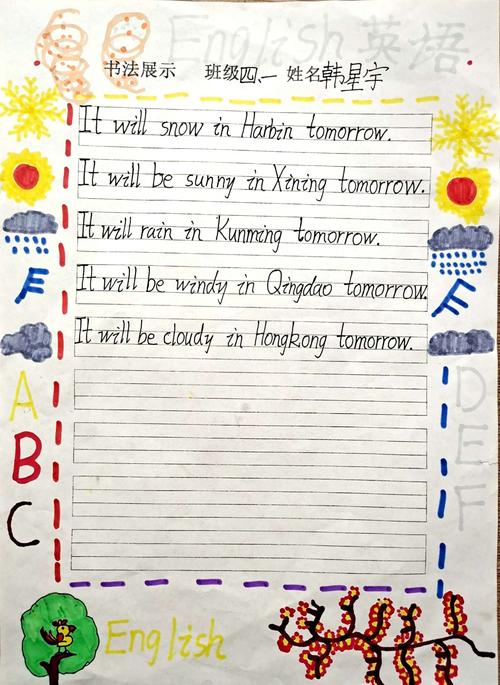 English 英语
书法展示 班级四.一 姓名韩星宇
It will snow in Harbin tomorrow.
It will be sunny in Xining tomorrow.
It will rain in Kunming tomorrow.
It will be windy in Qingdao tomorrow.
It will be cloudy in Hongkong tomorrow.
A
B
C
D
E
F
English